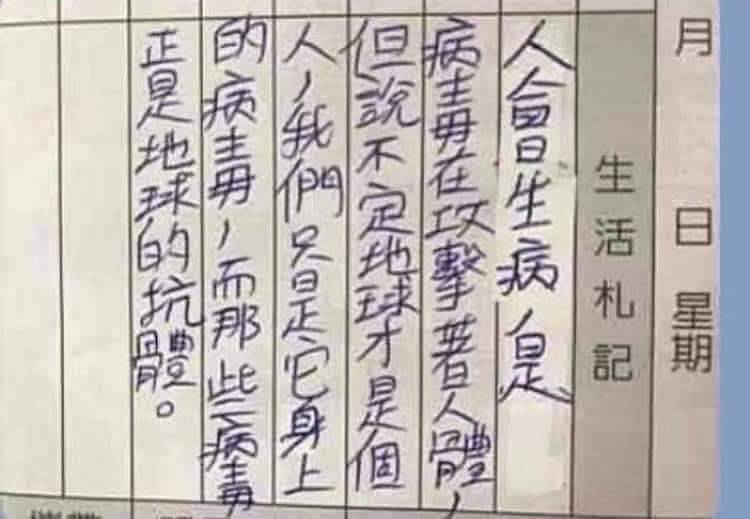 月 日 星期
生活札記
人會生病,是
病毒在攻擊著人體,
但說不定地球才是個
人,我們只是它身上
的病毒,而那些病毒
正是地球的抗體。